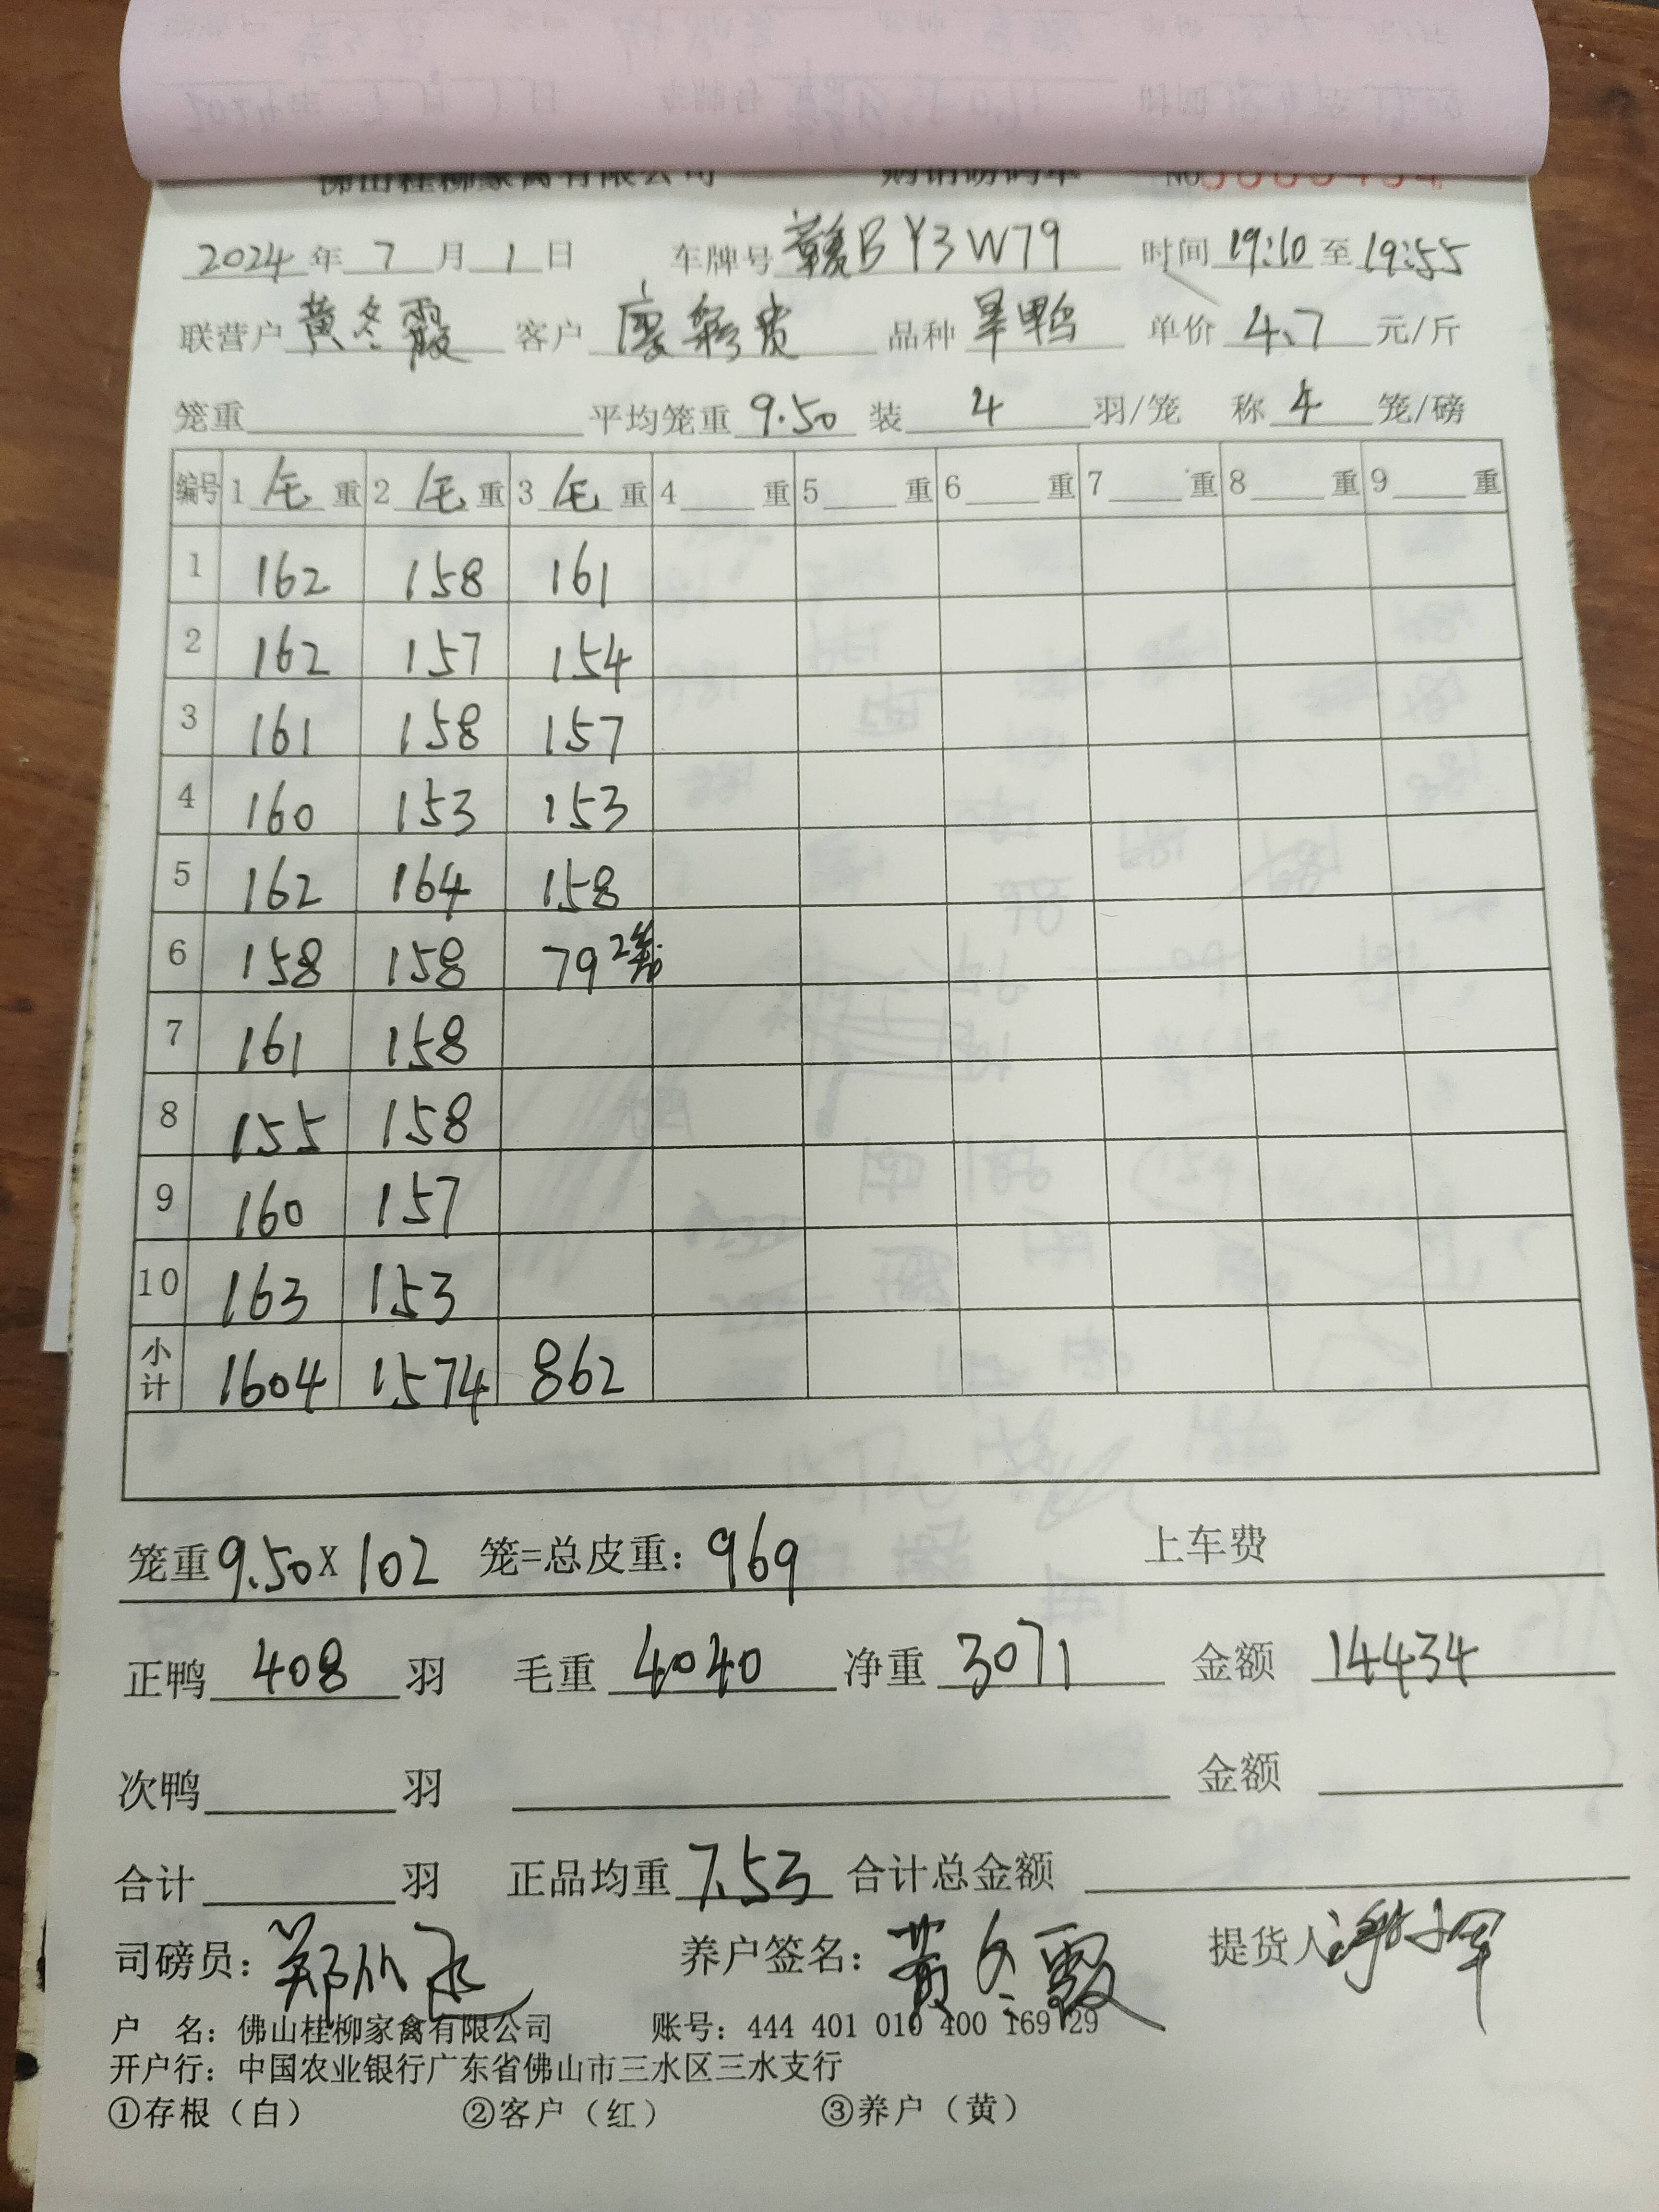 佛山桂柳家禽有限公司 购销磅码单 NO
2024年7月1日 车牌号 赣BY3W79 时间 19:10 至 19:55
联营户 黄冬霞 客户 廖彩贵 品种 旱鸭 单价 4.7 元/斤
笼重 平均笼重 9.50 装 4 羽/笼 称 4 笼/磅
编号 1 毛 重 2 毛 重 3 毛 重 4 重 5 重 6 重 7 重 8 重 9 重
1 162 158 161
2 162 157 154
3 161 158 157
4 160 153 153
5 162 164 158
6 158 158 79 2笼
7 161 158
8 155 158
9 160 157
10 163 153
小计 1604 1574 862
笼重 9.50 X 102 笼=总皮重: 969 上车费
正鸭 408 羽 毛重 4040 净重 3071 金额 14434
次鸭 羽 金额
合计 羽 正品均重 7.53 合计总金额
司磅员: 郑 养户签名: 黄冬霞 提货人
户 名: 佛山桂柳家禽有限公司 账号: 444 401 010 400 169 29
开户行: 中国农业银行广东省佛山市三水区三水支行
①存根（白） ②客户（红） ③养户（黄）